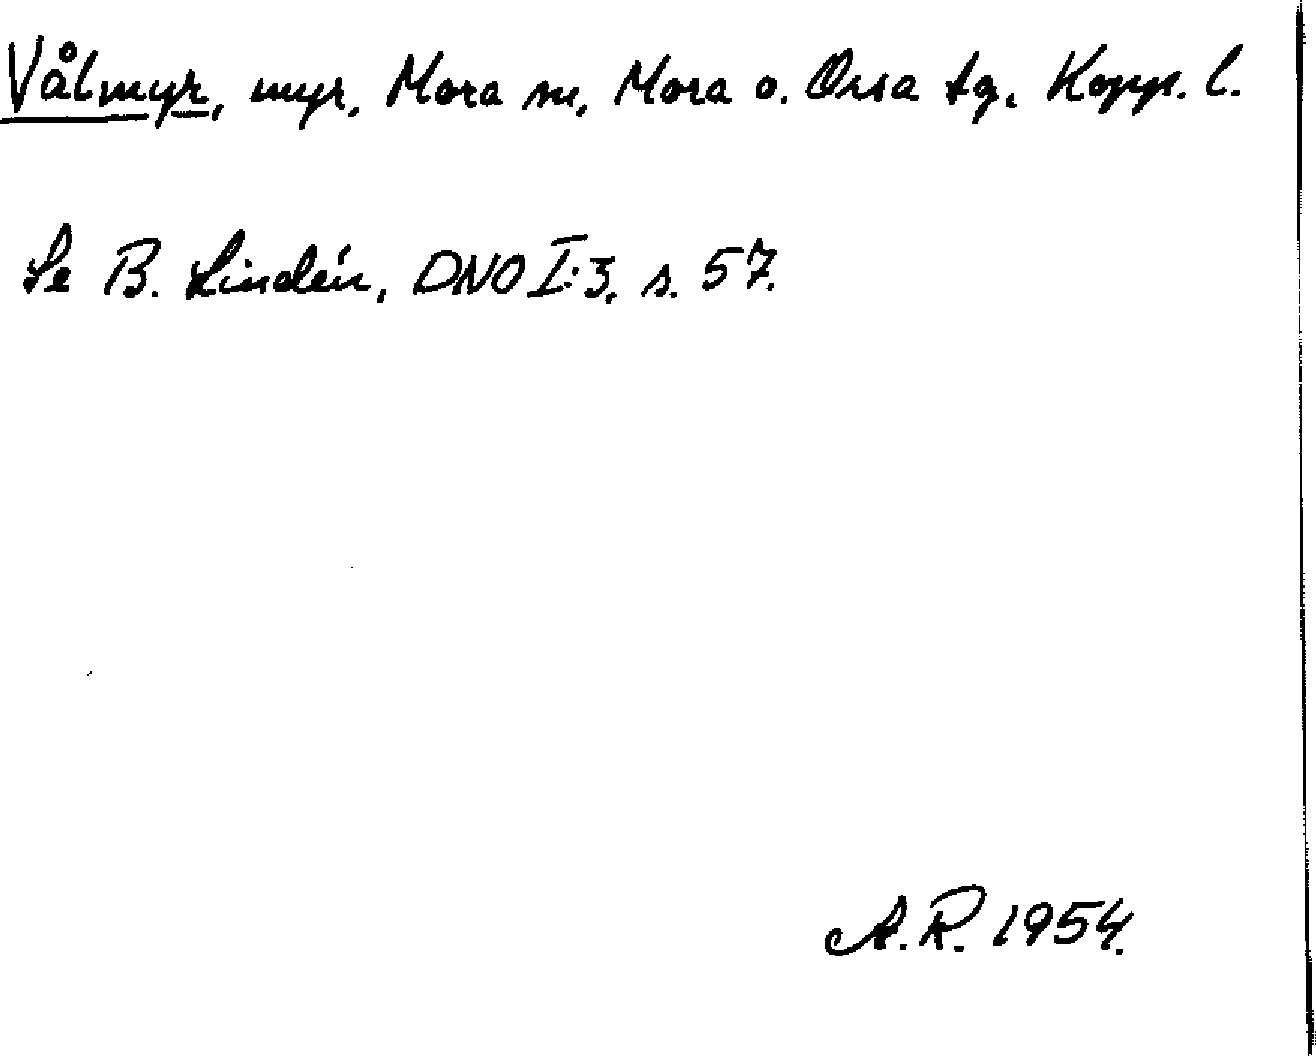 Vålmyr, myr, Mora sn, Mora o. Orsa tg, Kopp. l.
Se B. Lindén, DNO I:3, s. 57.
A.R. 1954.